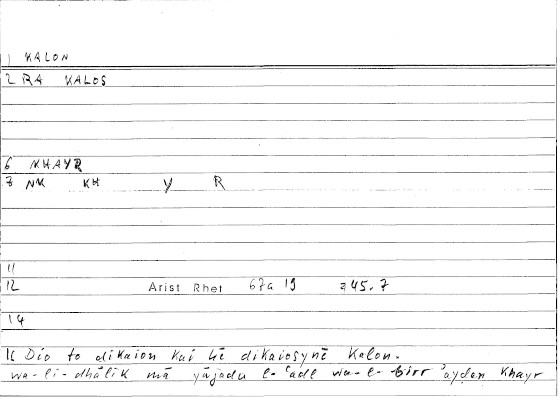 1 KALON
2 RA KALOS
6 KHAYR
8 NK KH Y R
11
12 Arist Rhet 67a 19 = 45.7
14
16 Dio to dikaion kai hē dikaiosynē kalon.
wa-li-dhālik mā yūjadu l-ʿadl wa-l-birr ʾayḍan khayr